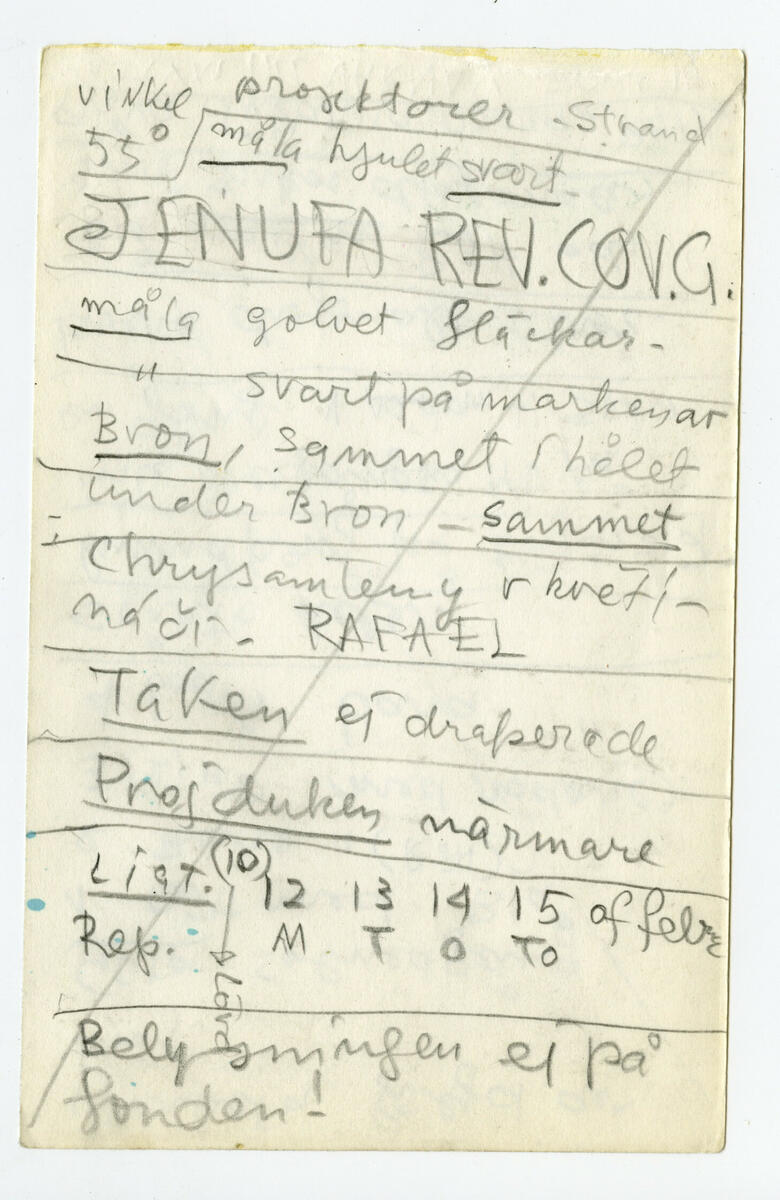 vinkel projektorer - Strand
55° måla hjulet svart -
JENUFA REV. COV.G.
måla golvet fläckar -
" svart på markenar
Bron, sammet i hålet
under Bron - sammet
Chrysamtemy v květi-
náči - RAFAEL
Taken ej draperade
Projduken närmare
Ligt. (10) 12 13 14 15 of febr
Rep. M T O TO
Belysningen ej på
fonden!